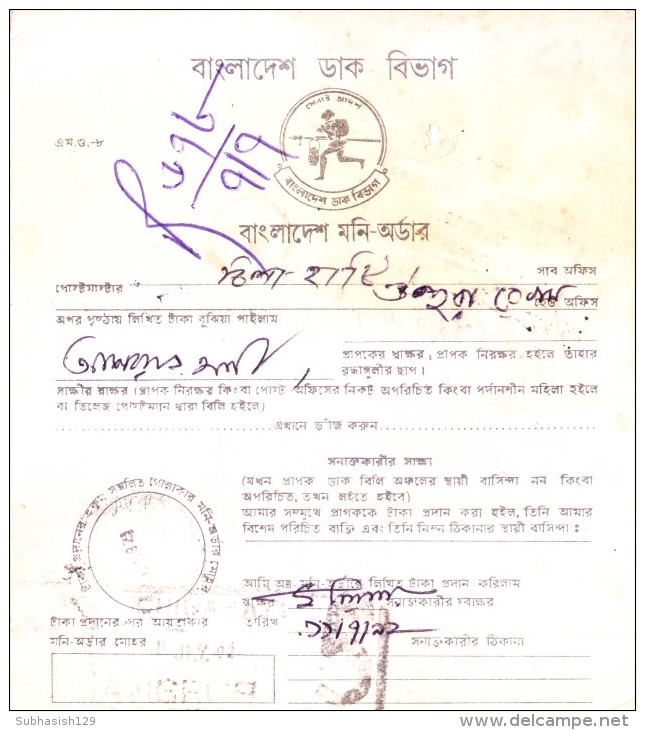 বাংলাদেশ ডাক বিভাগ
সেবাই আদর্শ
এম.ও.-৮
বাংলাদেশ ডাক বিভাগ
বাংলাদেশ মনি-অর্ডার
সাব অফিস
পোস্টমাস্টার
হেড অফিস
অপর পৃষ্ঠায় লিখিত টাকা বুঝিয়া পাইলাম
প্রাপকের স্বাক্ষর। প্রাপক নিরক্ষর হইলে তাহার
বৃদ্ধাঙ্গুলীর ছাপ।
সাক্ষীর স্বাক্ষর (প্রাপক নিরক্ষর কিংবা পোস্ট অফিসের নিকট অপরিচিত কিংবা পর্দানশীন মহিলা হইলে
বা ভিলেজ পোস্টম্যান দ্বারা বিলি হইলে)
এখানে ভাঁজ করুন
সনাক্তকারীর সাক্ষ্য
(যখন প্রাপক ডাক বিলি অঞ্চলের স্থায়ী বাসিন্দা নন কিংবা
অপরিচিত, তখন লইতে হইবে)
আমার সম্মুখে প্রাপককে টাকা প্রদান করা হইল, তিনি আমার
বিশেষ পরিচিত ব্যক্তি এবং তিনি নিম্ন ঠিকানার স্থায়ী বাসিন্দা :
টাকা প্রদানের হুকুম সম্বলিত গোলাকার মনি-অর্ডার মোহর
আমি অত্র মনি-অর্ডারে লিখিত টাকা প্রদান করিলাম
স্বাক্ষর
সনাক্তকারীর স্বাক্ষর
টাকা প্রদানের পর আয়তাকার
তারিখ
মনি-অর্ডার মোহর
সনাক্তকারীর ঠিকানা
Subhasish129
www.delcampe.net